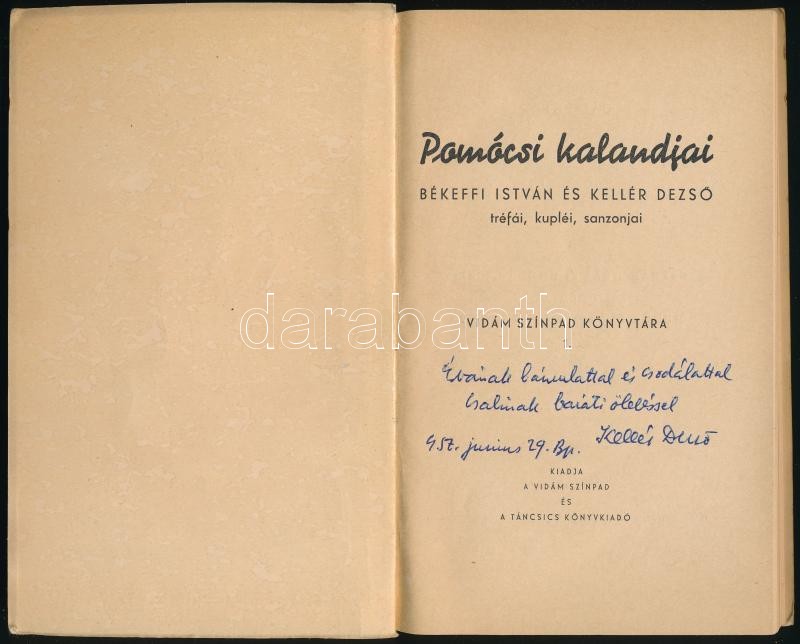 Pomócsi kalandjai
BÉKEFFI ISTVÁN ÉS KELLÉR DEZSŐ
tréfái, kupléi, sanzonjai
VIDÁM SZÍNPAD KÖNYVTÁRA
darabanth
Évának bámulattal és csodálattal
baráti öleléssel
957. junius 29. Bp. Kellér Dezső
KIADJA
A VIDÁM SZÍNPAD
ÉS
A TÁNCSICS KÖNYVKIADÓ